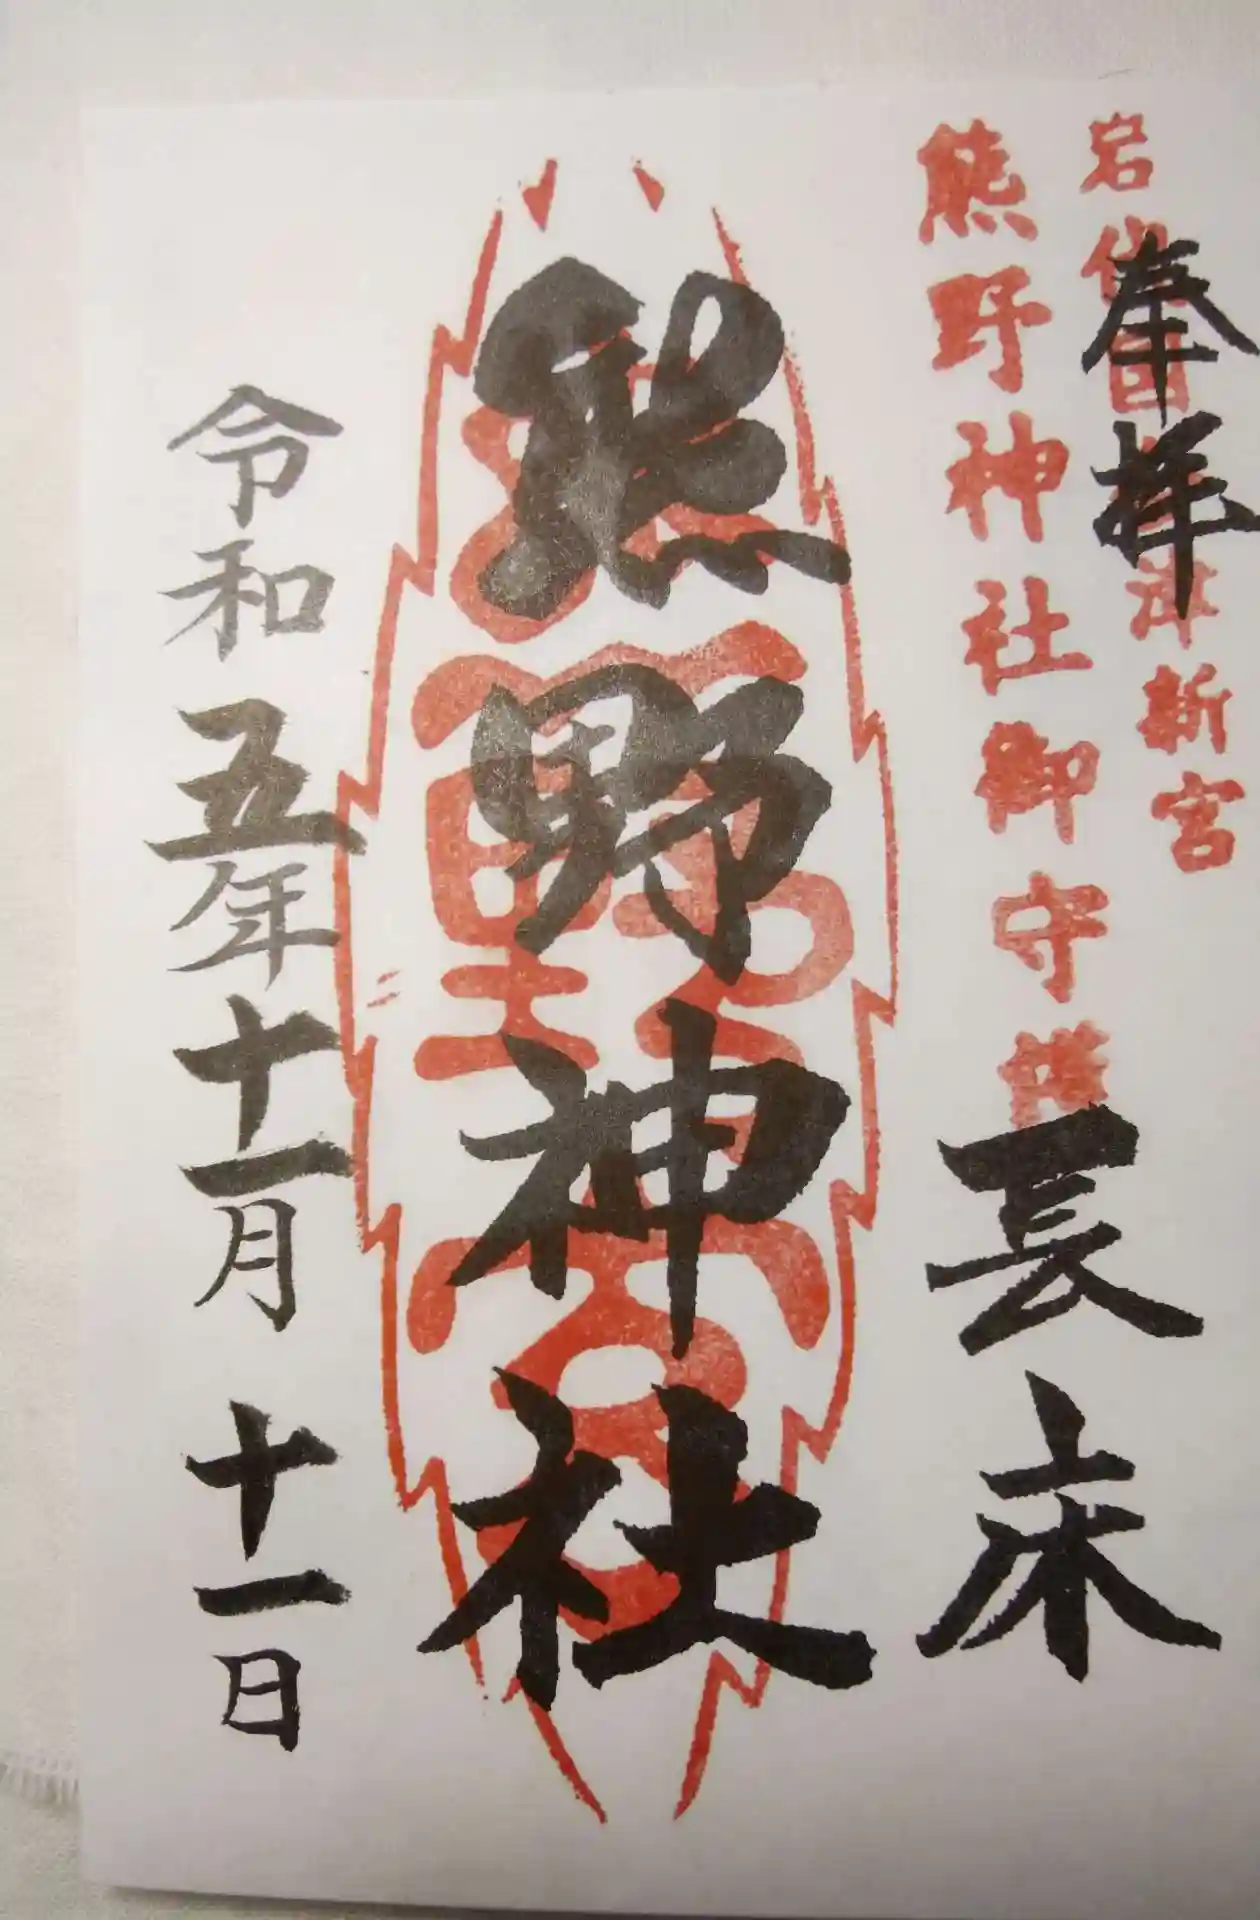 奉拝
岩代国 津新宮
熊野神社御守護
長床
熊野神社
令和五年十一月十一日